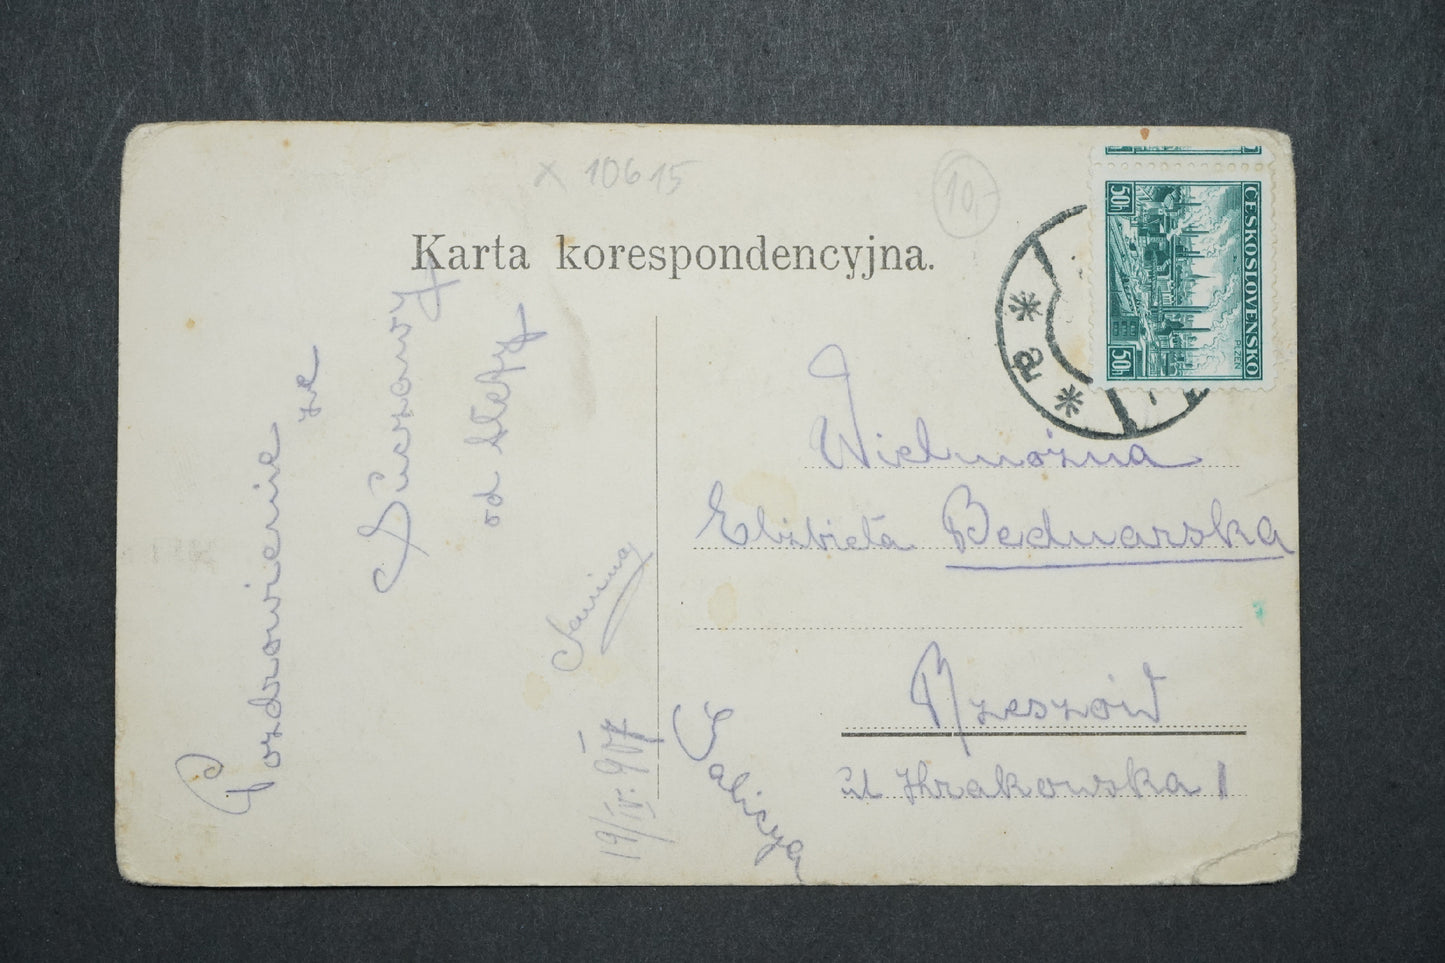 × 10615
10,-
Karta korespondencyjna.
ČESKOSLOVENSKO
PLZEŇ
50h
50h
Pozdrowienie ze
Suczawy
od
Janina
19/IV. 907
Wielmożna
Elżbieta Bednarska
Rzeszów
ul Krakowska 1
Galicya